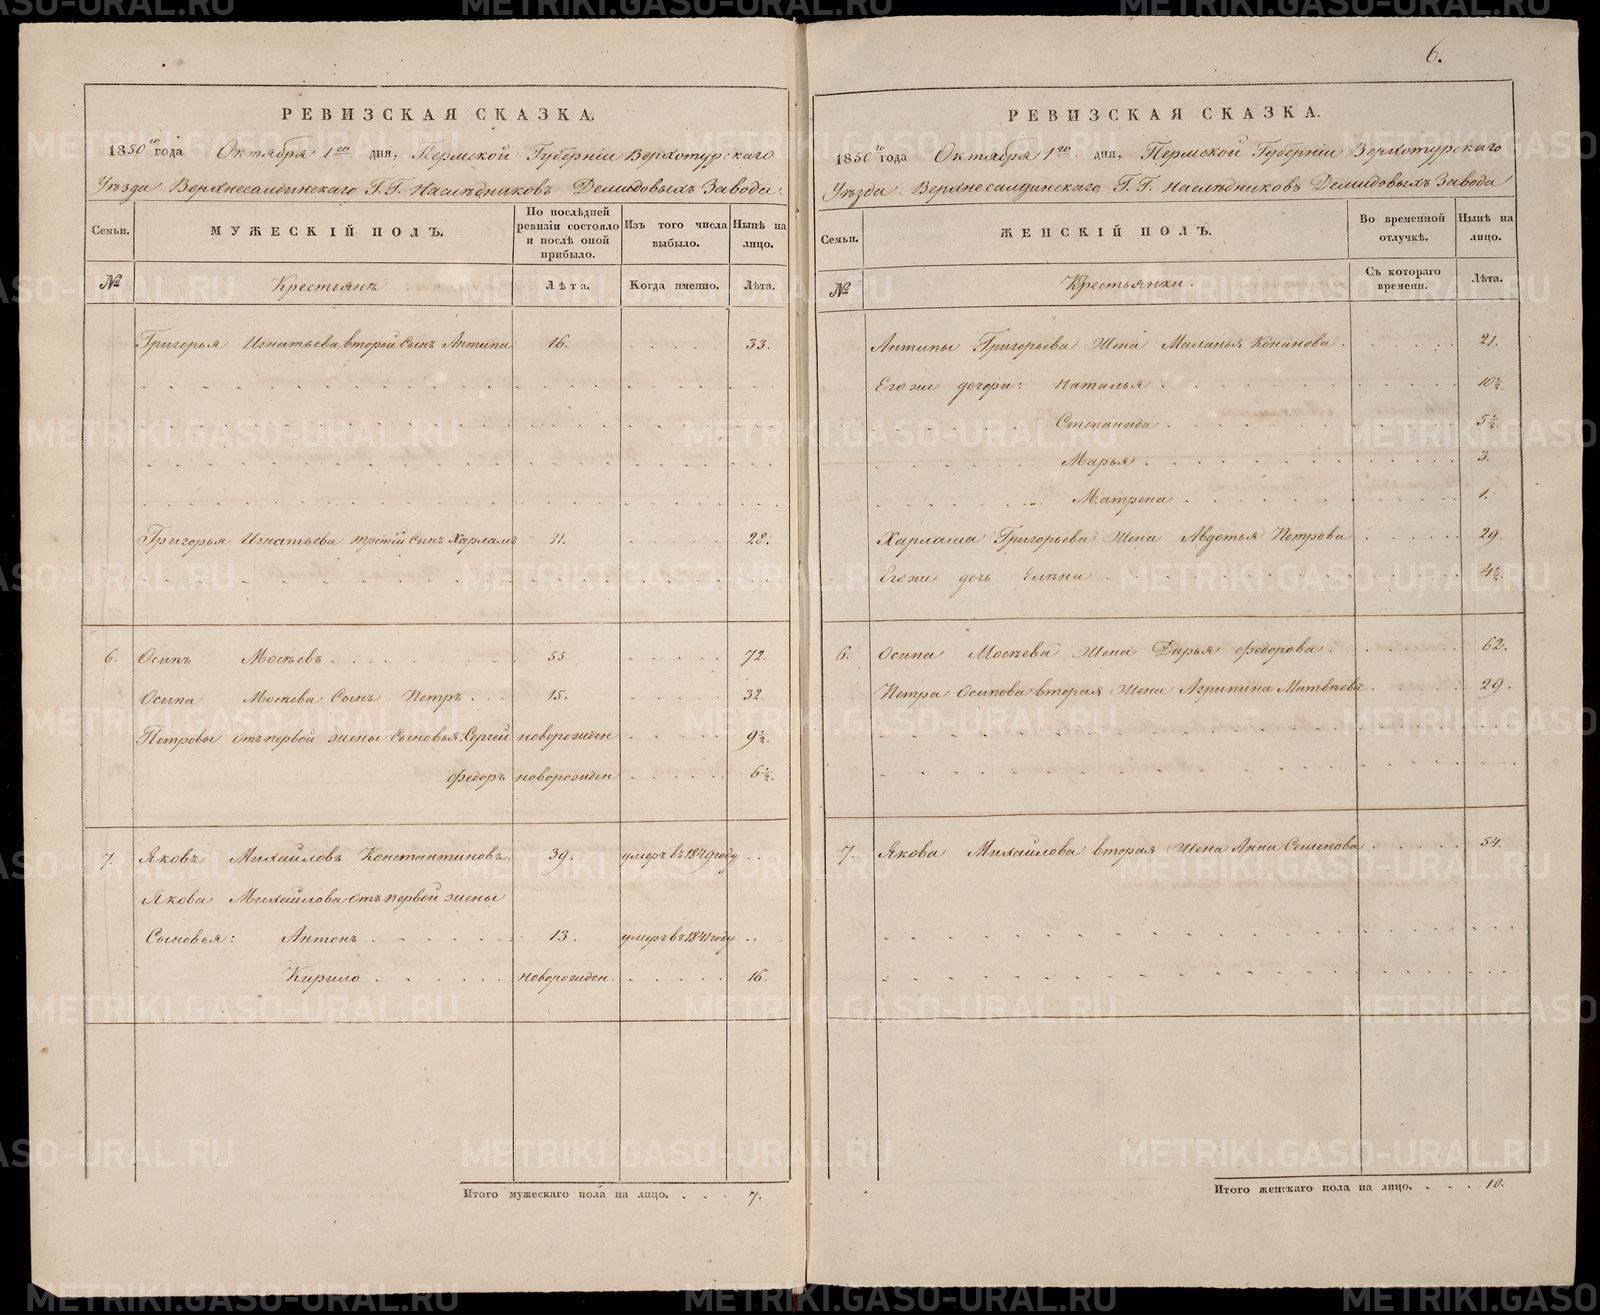 6.
РЕВИЗСКАЯ СКАЗКА.
1850го года Октября 1го дня, Пермской Губерніи Верхотурскаго
Уѣзда Верхнесалдинскаго Г.Г. Наслѣдниковъ Демидовыхъ Завода.
Семьи.
МУЖЕСКІЙ ПОЛЪ.
По послѣдней ревизіи состояло и послѣ оной прибыло.
Изъ того числа выбыло.
Нынѣ на лицо.
№
Крестьянъ
Лѣта.
Когда именно.
Лѣта.
Григорья Игнатьева второй Сынъ Антипа 16. 33.
Григорья Игнатьева третій Сынъ Харламъ 11. 28.
6. Осипъ Мосѣевъ 55 72.
Осипа Мосѣева Сынъ Петръ 15. 32
Петровы отъ первой жены Сыновья: Сергей новорожден 9½.
Федоръ новорожден 6½.
7. Яковъ Михайловъ Константиновъ. 39. умеръ въ 1849 году
Якова Михайлова отъ первой жены
Сыновья: Антонъ 13. умеръ въ 1841 году
Кирило новорожден. 16.
Итого мужескаго пола на лицо. 7.
РЕВИЗСКАЯ СКАЗКА.
1850го года Октября 1го дня, Пермской Губерніи Верхотурскаго
Уѣзда Верхнесалдинскаго Г.Г. Наслѣдниковъ Демидовыхъ Завода
Семьи.
ЖЕНСКІЙ ПОЛЪ.
Во временной отлучкѣ.
Нынѣ на лицо.
№
Крестьянки.
Съ котораго времени.
Лѣта.
Антипы Григорьева Жена Маланья Конанова. 21.
Его же дочери: Наталья 10½.
Степанида 5½.
Марья 3.
Матрена 1.
Харлама Григорьева Жена Авдотья Петрова 29.
Его же дочь Елена 4½.
6. Осипа Мосѣева Жена Дарья Федорова. 62.
Петра Осипова вторая Жена Агрипина Матвѣева 29.
7. Якова Михайлова вторая Жена Анна Семенова 54.
Итого женскаго пола на лицо. 10.
METRIKI.GASO-URAL.RU